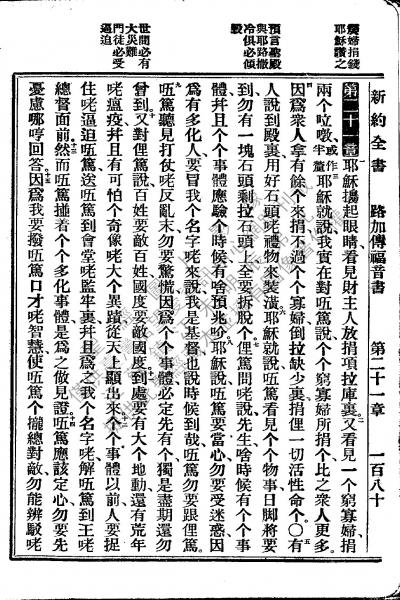 新約全書　路加傳福音書　第二十一章　一百八十
窮婦捐錢
耶穌讚之
預言聖殿
與耶路撒
冷俱必傾
毀
世間必有
大災難
門徒必受
逼迫
第二十一章耶穌擡起眼睛看見財主人放捐項拉庫裏又看見一个窮寡婦捐
兩个咕噋或作半釐耶穌就說我實在對㕶篤說个个窮寡婦所捐个比之衆人更多
因爲衆人拿有餘个來捐不過个个寡婦倒拉缺少裏捐俚一切活性命个○有
人說到殿裏用好石頭咾禮物來裝潢耶穌就說㕶篤看見个个物事日脚將要
到勿有一塊石頭剩拉石頭上全要拆脫个俚篤問咾說先生啥時候有个个事
體幷且个个事體應驗个時候有啥預兆吤耶穌說㕶篤要當心勿要受迷惑因
爲有多化人要冒我个名字咾來說我是基督也說時候到哉㕶篤勿要跟俚篤
㕶篤聽見打仗咾反亂末勿要驚慌因爲个个事體必定先有个獨是盡期還勿
曾到又對俚篤說百姓要敵百姓國度要敵國度到處要有大个地動還有荒年
咾瘟疫幷且有可怕个奇像咾大个異蹟從天上顯出來个个事體以前人要捉
住咾逼迫㕶篤送㕶篤到會堂咾監牢裏幷且爲我个名字咾解㕶篤到王咾
總督面前然而㕶篤撞着个个多化事體是爲之做見證㕶篤應該定心勿要先
憂慮哪哼回答因爲我要撥㕶篤口才咾智慧使㕶篤个攏總對敵勿能辨駁咾